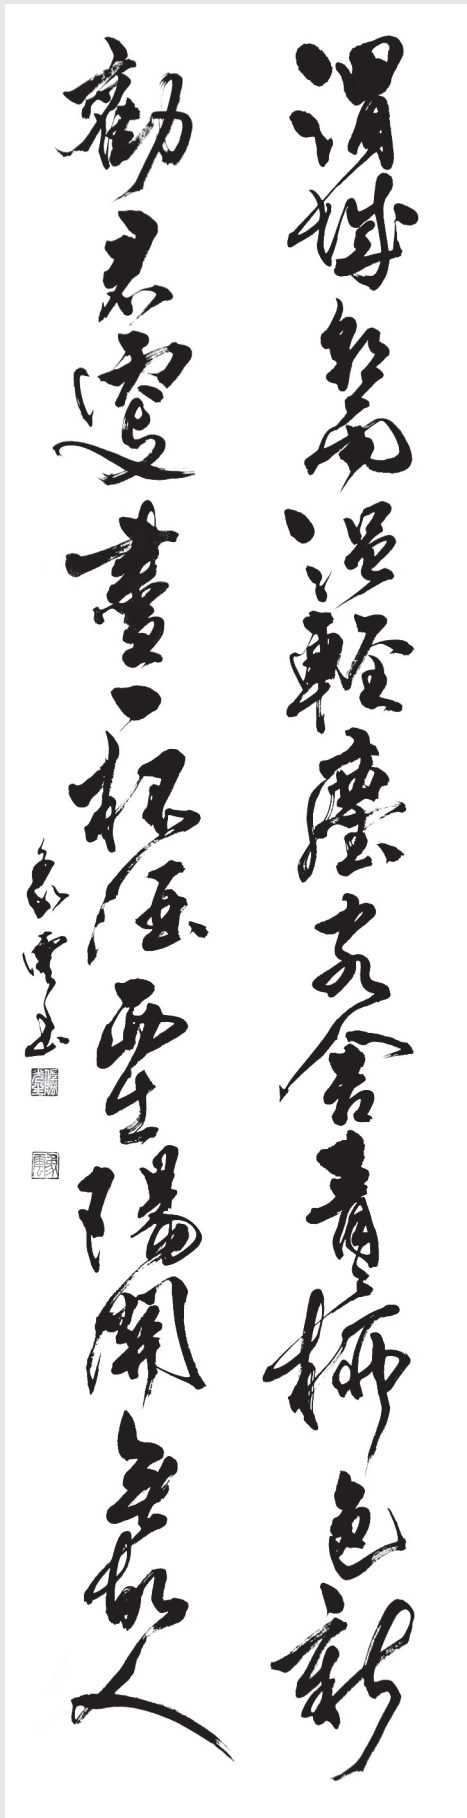 渭城朝雨浥輕塵客舍青々柳色新
勸君更盡一杯酒西出陽關無故人
象雲書